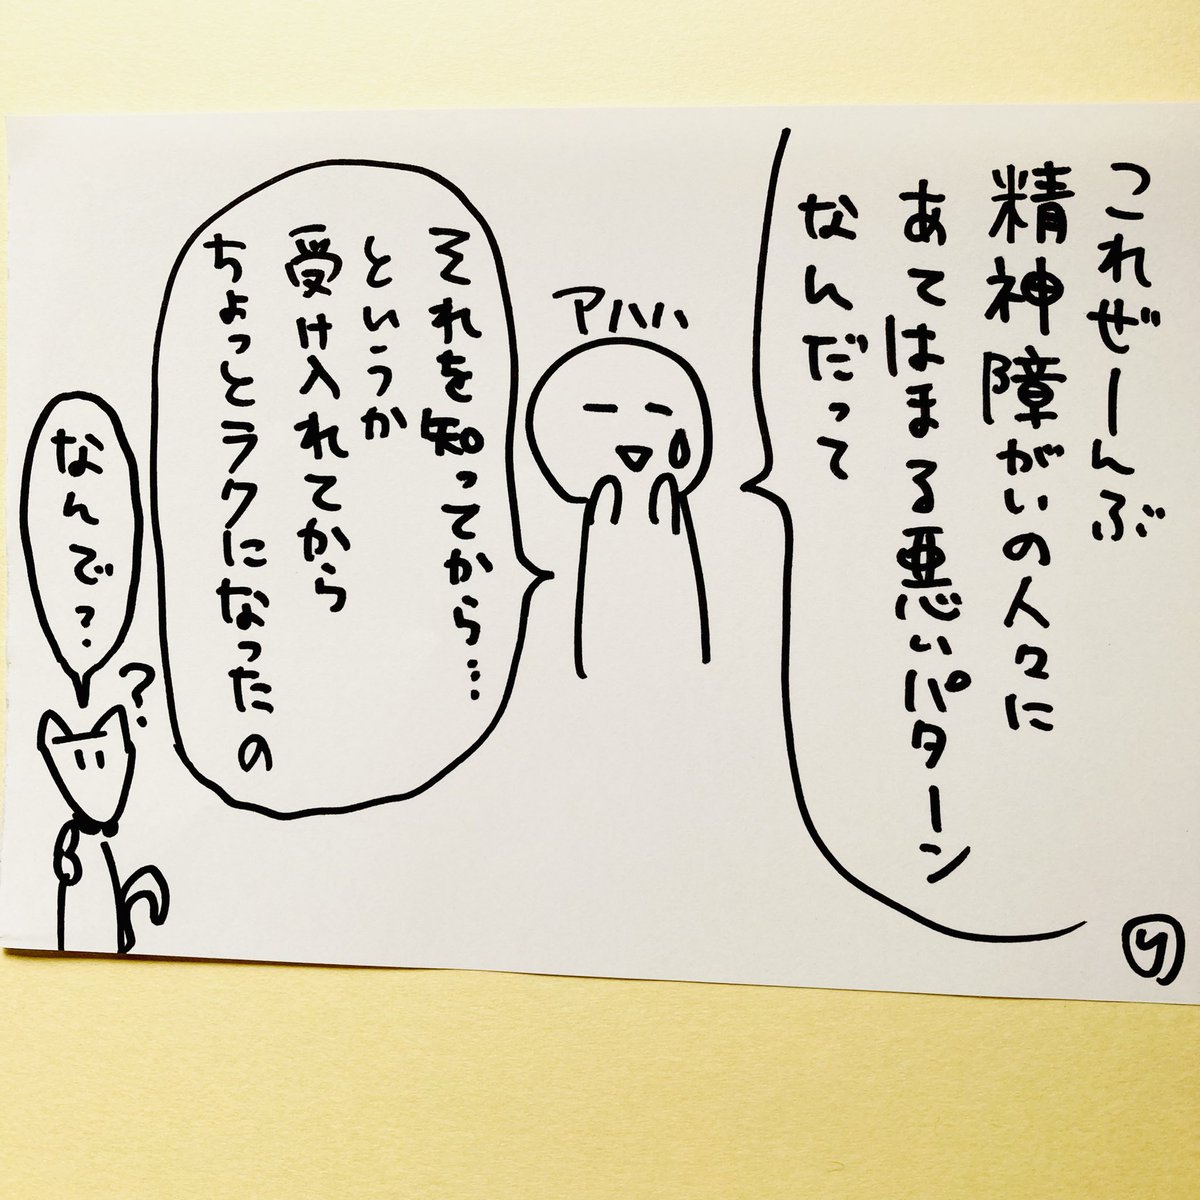 これぜーんぶ
精神障がいの人々に
あてはまる悪いパターン
なんだって
アハハ
それを知ってから…
というか
受け入れてから
ちょっとラクになったの
なんで?
?
り